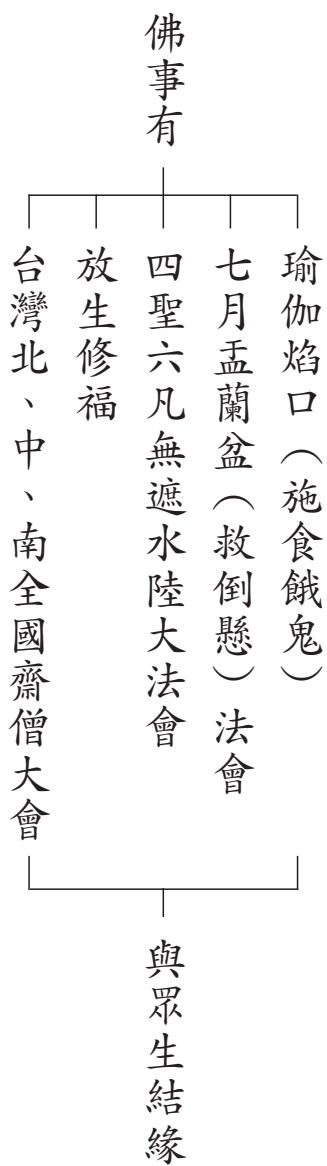 佛事有
瑜伽焰口（施食餓鬼）
七月盂蘭盆（救倒懸）法會
四聖六凡無遮水陸大法會
放生修福
台灣北、中、南全國齋僧大會
與眾生結緣